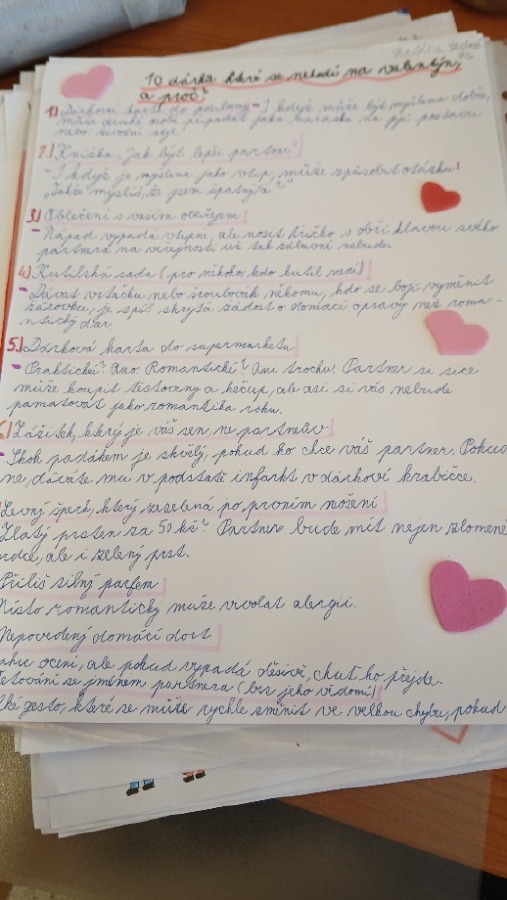 10 dárků které se nehodí na valentýn,
a proč?
1.) Dárková karta do posilovny - I když může být myšlena dobře,
může druhé osobě připadat jako narážka na její postavu
nebo životní styl.
2.) Knížka "Jak být lepší partner"
- I když je myšlena jako vtip, může způsobit otázku!
"Takže myslíš, že jsem špatný/á?"
3.) Oblečení s vaším obličejem
- Nápad vypadá vtipně, ale nosit tričko s obří hlavou svého
partnera na veřejnosti už tak zábavné nebude.
4.) Kutilská sada (pro někoho, kdo kutil není)
- Dávat vrtačku nebo šroubovák někomu, kdo se bojí vyměnit
žárovku, je spíš skrytá žádost o domácí opravy než roma-
ntický dar.
5.) Dárková karta do supermarketu
- Praktické? Ano. Romantické? Ani trochu. Partner si sice
může koupit těstoviny a kečup, ale asi si vás nebude
pamatovat jako romantika roku.
6.) Zážitek, který je váš sen ne partnerův
- Skok padákem je skvělý, pokud ho chce váš partner. Pokud
ne, dáváte mu v podstatě infarkt v dárkové krabičce.
Levný šperk, který zezelená po prvním nošení
Zlatý prsten za 50 kč? Partner bude mít nejen zlomené
rdce, ale i zelený prst.
Příliš silný parfem
Místo romantický může vyvolat alergii.
Nepovedený domácí dort
ahu ocení, ale pokud vypadá děsivě, chuť ho přejde.
Tetování se jménem partnera (bez jeho vědomí)
lké gesto, které se může rychle změnit ve velkou chybu, pokud